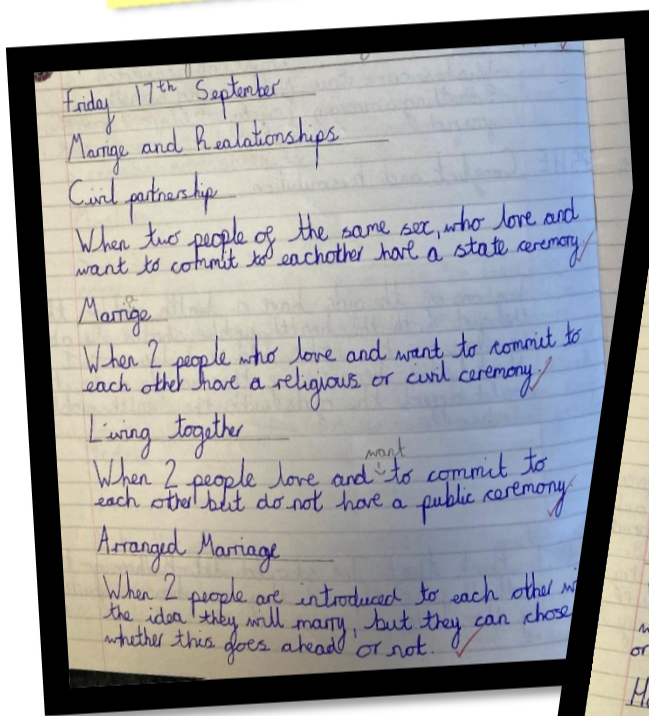 Friday 17th September
Marrige and Realationships
Civil partnership
When two people of the same sex, who love and
want to commit to eachother have a state ceremony
Marrige
When 2 people who love and want to commit to
each other have a religious or civil ceremony.
Living together
When 2 people love and want to commit to
each other but do not have a public ceremony
Arranged Marriage
When 2 people are introduced to each other
the idea they will marry, but they can chose
whether this goes ahead or not.
or